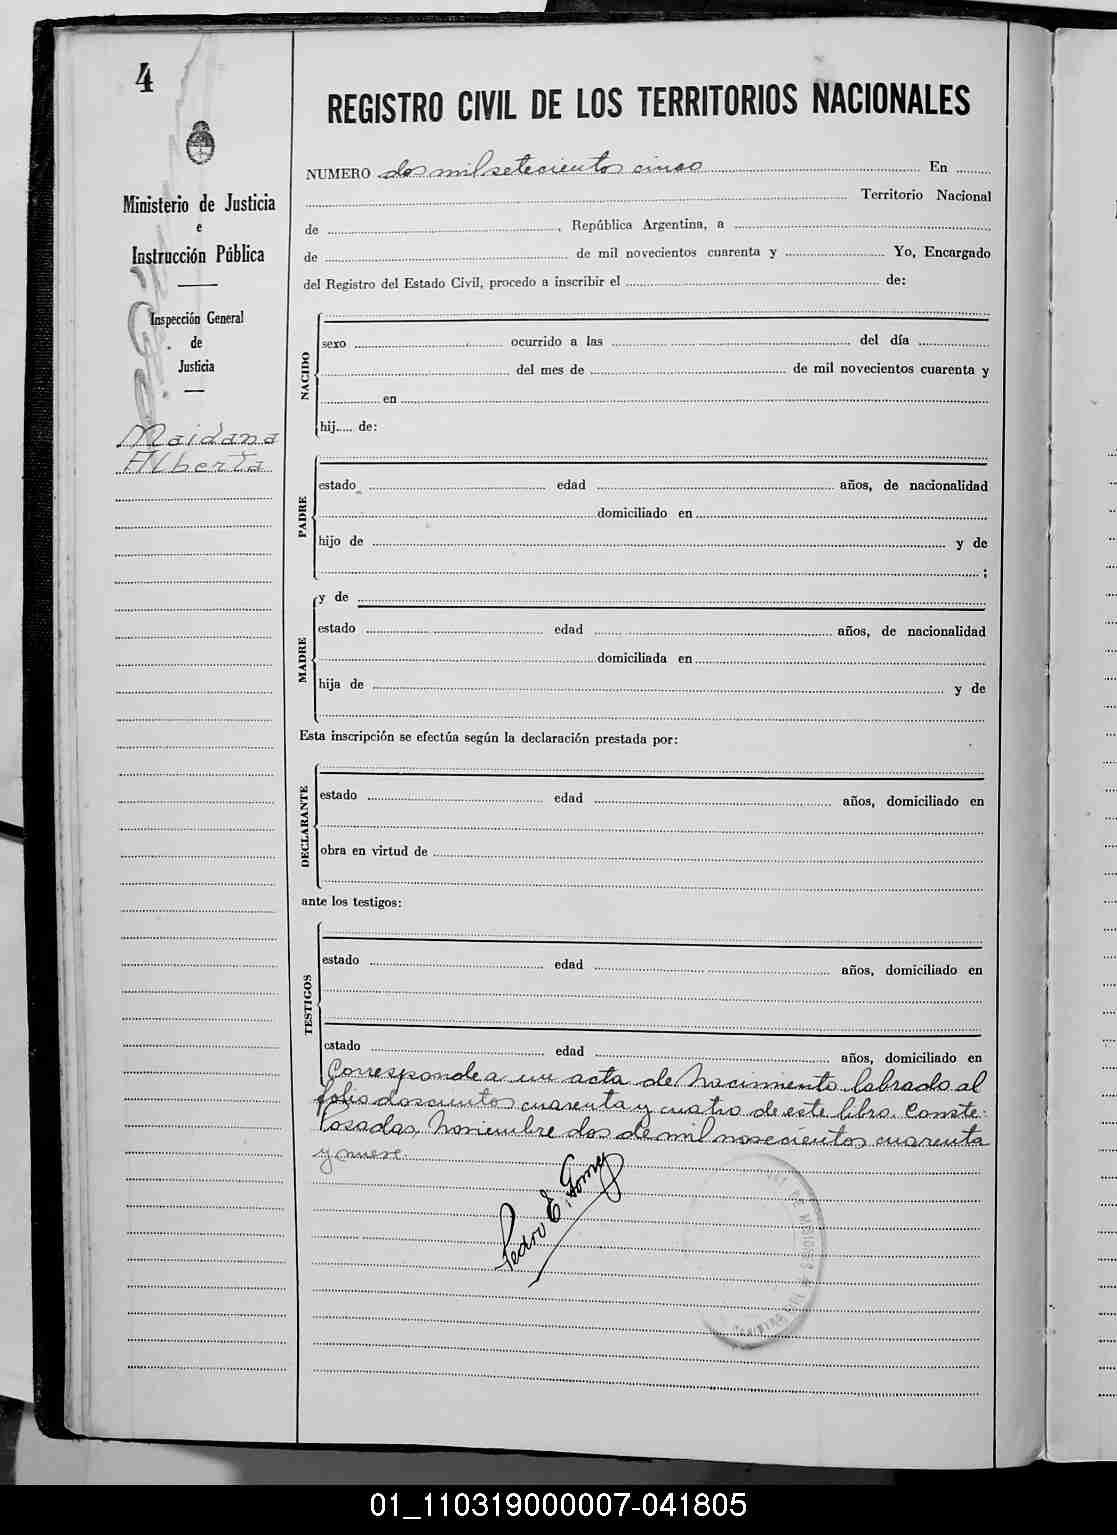 4
REGISTRO CIVIL DE LOS TERRITORIOS NACIONALES
Ministerio de Justicia
e
Instrucción Pública
Inspección General
de
Justicia
Maidana
Alberta
NUMERO dos mil setecientos cinco En
Territorio Nacional
de , República Argentina, a
de de mil novecientos cuarenta y Yo, Encargado
del Registro del Estado Civil, procedo a inscribir el de:
NACIDO
sexo ocurrido a las del día
del mes de de mil novecientos cuarenta y
en
hij..... de:
PADRE
estado edad años, de nacionalidad
domiciliado en
hijo de y de
;
MADRE
y de
estado edad años, de nacionalidad
domiciliada en
hija de y de
Esta inscripción se efectúa según la declaración prestada por:
DECLARANTE
estado edad años, domiciliado en
obra en virtud de
ante los testigos:
TESTIGOS
estado edad años, domiciliado en
estado edad años, domiciliado en
Corresponde a un acta de Nacimiento labrado al
folio doscientos cuarenta y cuatro de este libro. Conste.
Posadas, Noviembre dos de mil novecientos cuarenta
y nueve.
Pedro E. Gomez
01_110319000007-041805